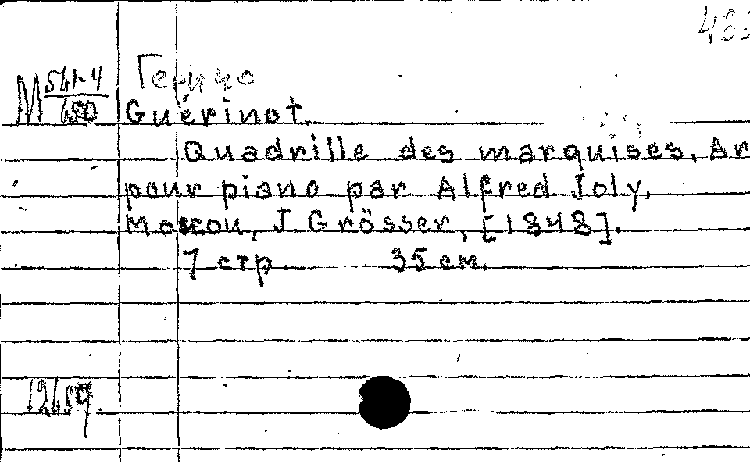 Guérinot.
Quadrille des marquises. Ar
pour piano par Alfred Joly.
Moscou, J. Grösser, [1848].
7 стр 35 см.